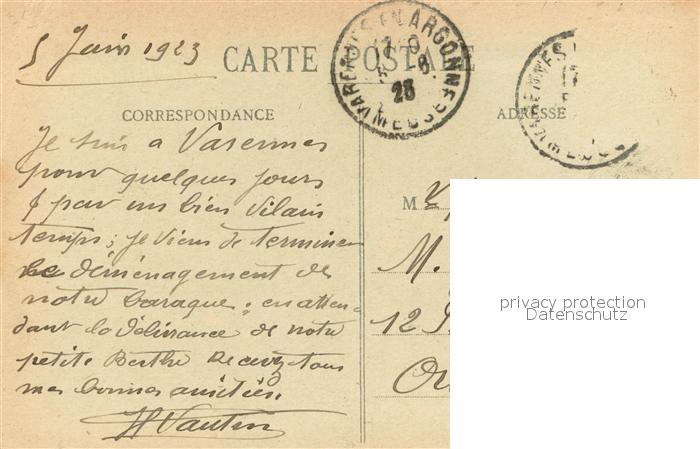 5 Juin 1923
CARTE POSTALE
VARENNES EN ARGONNE
MEUSE
23
CORRESPONDANCE
ADRESSE
Je suis a Varennes
pour quelques jours
& par un bien vilain
temps; je viens de terminer
le déménagement de
notre baraque; en atten-
dant la délivrance de notre
petite Berthe Recevez tous
mes bonnes amitiés.
HVautrin
M
M.
12
privacy protection
Datenschutz